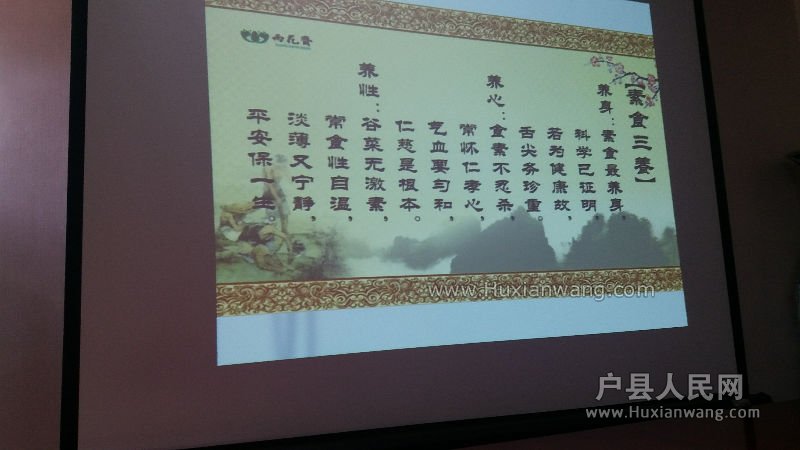 雨花斋
【素食三養】
养身：素食最养身，
科学已证明，
若为健康故，
舌尖务珍重。
养心：食素不忍杀，
常怀仁孝心，
气血要匀和，
仁慈是根本。
养性：谷菜无激素，
常食性自温，
淡薄又宁静，
平安保一生。
www.Huxianwang.com
户县人民网
www.Huxianwang.com